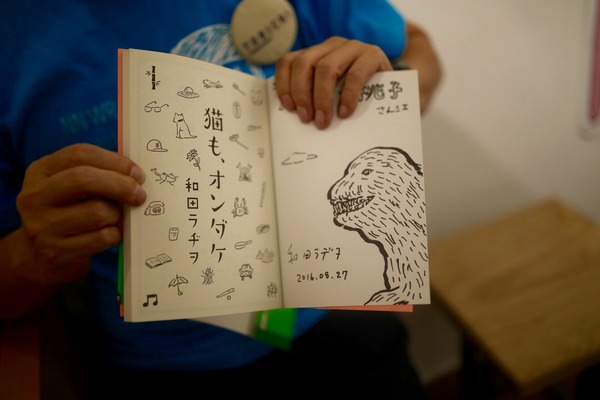 猫も、オンダケ
和田ラヂヲ
子
さんエ
和田ラヂヲ
2016.08.27